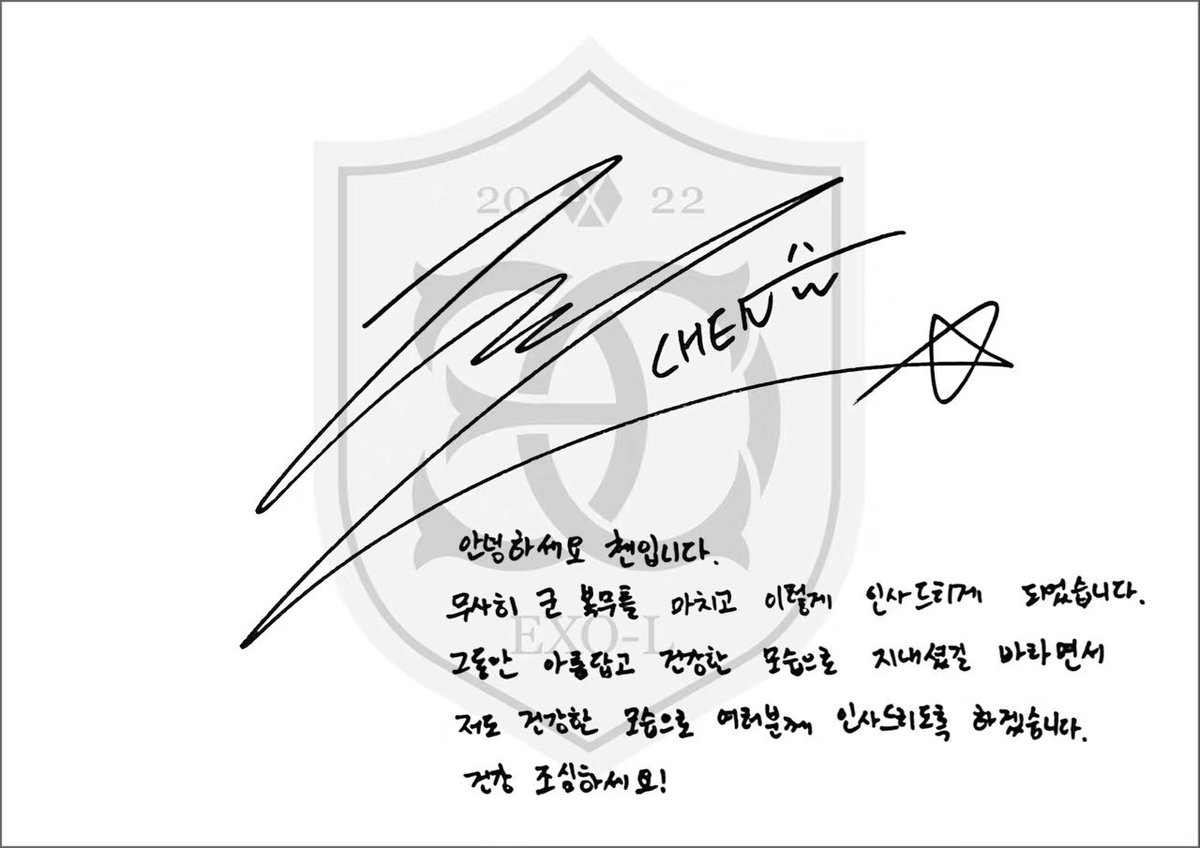 20 22
CHEN
안녕하세요 첸입니다.
무사히 군 복무를 마치고 이렇게 인사드리게 되었습니다.
그동안 아름답고 건강한 모습으로 지내셨길 바라면서
EXO-L
저도 건강한 모습으로 여러분께 인사드리도록 하겠습니다.
건강 조심하세요!